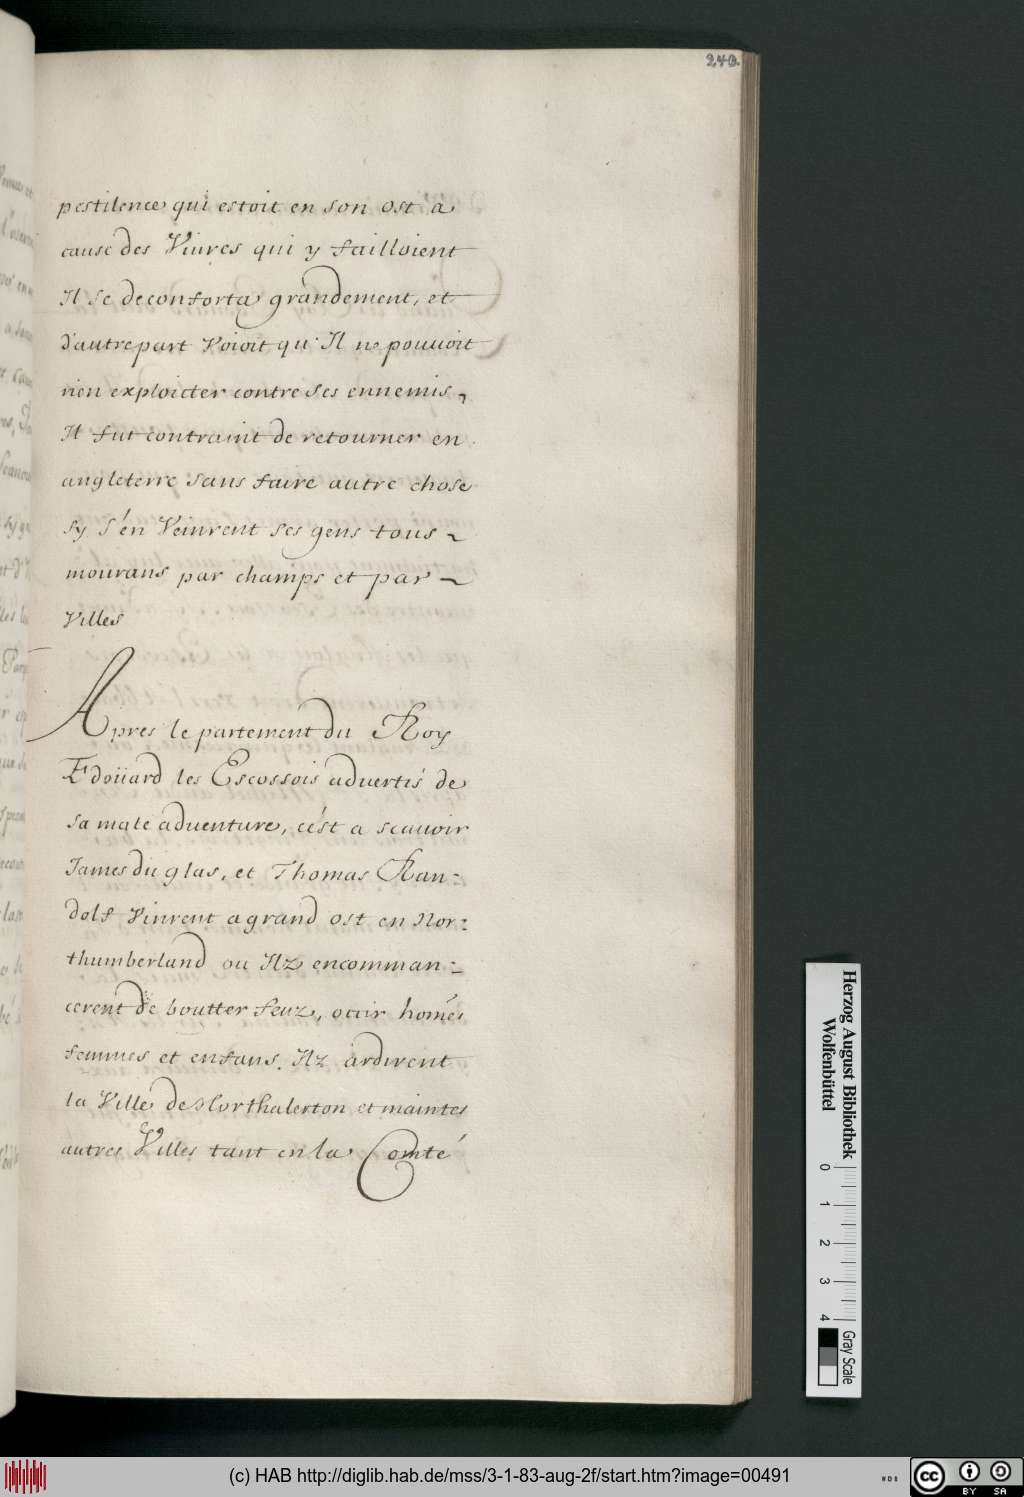 240.
pestilence qui estoit en son ost a
cause des Viures qui y failloient
Il se deconforta grandement, et
d'autre part Voioit qu'Il ne pouuoit
rien exploicter contre ses ennemis,
Il fut contraint de retourner en
angleterre sans faire autre chose
sy s'en Veinrent ses gens tous
mourans par champs et par
Villes
Apres le partement du Roy
Edoüard les Escossois aduertis de
sa male aduenture, cést a scauoir
James du glas, et Thomas Ran-
dolf Vinrent a grand ost en Nor-
thumberland ou Ilz encomman-
cerent de boutter feuz, occir homés
femmes et enfans. Ilz ardirent
la Ville de Northalerton et maintes
autres Villes tant en la Comté
Herzog August Bibliothek
Wolfenbüttel
0 1 2 3 4
Gray Scale
(c) HAB http://diglib.hab.de/mss/3-1-83-aug-2f/start.htm?image=00491
WDB
cc BY SA